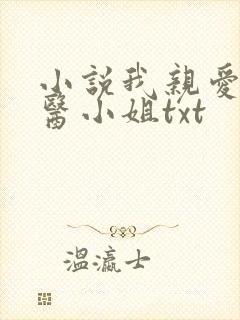 小説我親愛
醫小姐txt
溫瀛士